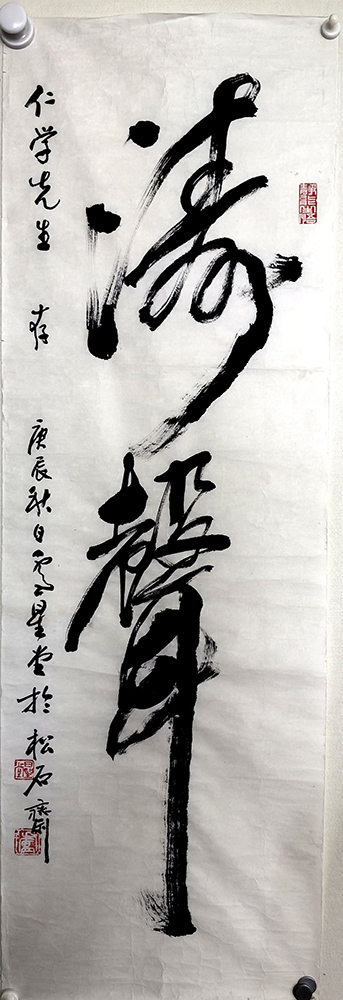 涛聲
仁学先生 存
庚辰秋日星堂於松石齋